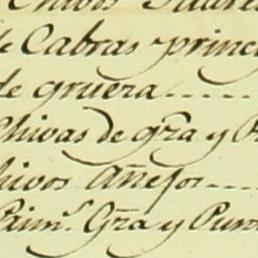 Chivos
de Cabras princi
de gruera.....
Chivas de gza y P
hivos Añejos....
Prim.s Gza y Pun